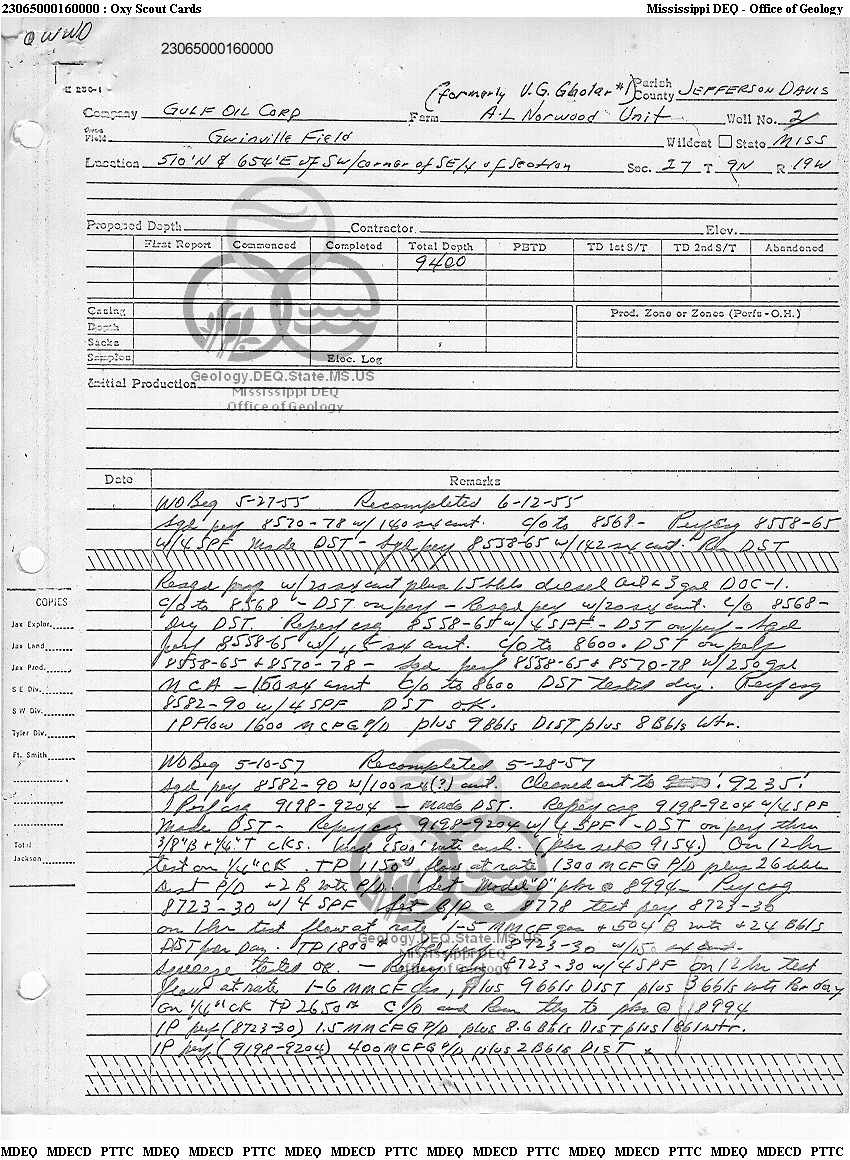 23065000160000 : Oxy Scout Cards Mississippi DEQ - Office of Geology
OWWO
23065000160000
E 250-1
(formerly V.G. Gholar #1) Parish County JEFFERSON DAVIS
Company GULF OIL CORP Farm A-L Norwood Unit Well No. 2
Area Field Gwinville Field Wildcat State MISS
Location 510'N & 654'E of SW/corner of SE/4 of Section Sec. 27 T 9N R 19W
Proposed Depth Contractor Elev.
First Report Commenced Completed Total Depth PBTD TD 1st S/T TD 2nd S/T Abandoned
9400
Casing Prod. Zone or Zones (Perfs-O.H.)
Depth
Sacks
Samples Elec. Log
Geology.DEQ.State.MS.US
Mississippi DEQ
Office of Geology
Initial Production
Date Remarks
WO Beg 5-27-55 Recompleted 6-12-55
Sqd perf 8570-78 w/140 sx cmt. C/O to 8568 - Perf csg 8558-65
w/4 SPF Made DST - Sqd perf 8558-65 w/142 sx cmt. Ran DST
Resqd perf w/20 sx cmt plus 15 bbls diesel oil & 3 gal DOC-1.
C/O to 8568 - DST on perf - Resqd perf w/20 sx cmt. C/O 8568-
Dry DST. Reperf csg 8558-65 w/4 SPF - DST on perf - Sqd
perf 8558-65 w/ sx cmt. C/O to 8600. DST on perfs
8558-65 & 8570-78 - Sqd perf 8558-65 & 8570-78 w/250 gal
MCA - 150 sx cmt C/O to 8600 DST tested dry. Perf csg
8582-90 w/4 SPF DST O.K.
IP Flow 1600 MCFG P/D plus 9 Bbls DIST plus 8 Bbls Wtr.
WO Beg 5-10-57 Recompleted 5-28-57
Sqd perf 8582-90 w/100 sx(?) cmt. Cleaned out to 9235'
Perf csg 9198-9204 - made DST. Reperf csg 9198-9204 w/4 SPF
Made DST - Reperf csg 9198-9204 w/4 SPF - DST on perf thru
3/8"B & 1/4"T cks. Used 1500' wtr cush. (Pkr set @ 9154.) On 12 hr
test on 1/4"CK. TP 1150# flow at rate 1300 MCFG P/D plus 26 bbls
Dist P/D + 2 B wtr P/D. Set Model "D" pkr @ 8994 - Perf csg
8723-30 w/4 SPF Set B/P @ 8778 test perf 8723-30
on 1 hr test flow at rate 1-5 MMCF gas + 504 B wtr + 24 Bbls
DIST per Day. TP 1800# Sqd perf 8723-30 w/150 sx cmt.
Squeeze tested OK. - Reperf csg 8723-30 w/4 SPF on 12 hr test
flow at rate 1-6 MMCF gas, plus 9 bbls DIST plus 3 bbls wtr Per day
on 1/4"CK TP 2650# C/O and Ran tbg to pkr @ 8994
IP perf (8723-30) 1.5 MMCFG P/D plus 8.6 Bbls Dist plus 1 Bbl wtr.
IP perf (9198-9204) 400 MCFG P/D plus 2 Bbls DIST
Geology.DEQ.State.MS.US
Mississippi DEQ
Office of Geology
COPIES
Jax Explor.
Jax Land
Jax Prod.
S E Div.
S W Div.
Tyler Div.
Ft. Smith
Total
Jackson
MDEQ MDECD PTTC MDEQ MDECD PTTC MDEQ MDECD PTTC MDEQ MDECD PTTC MDEQ MDECD PTTC MDEQ MDECD PTTC